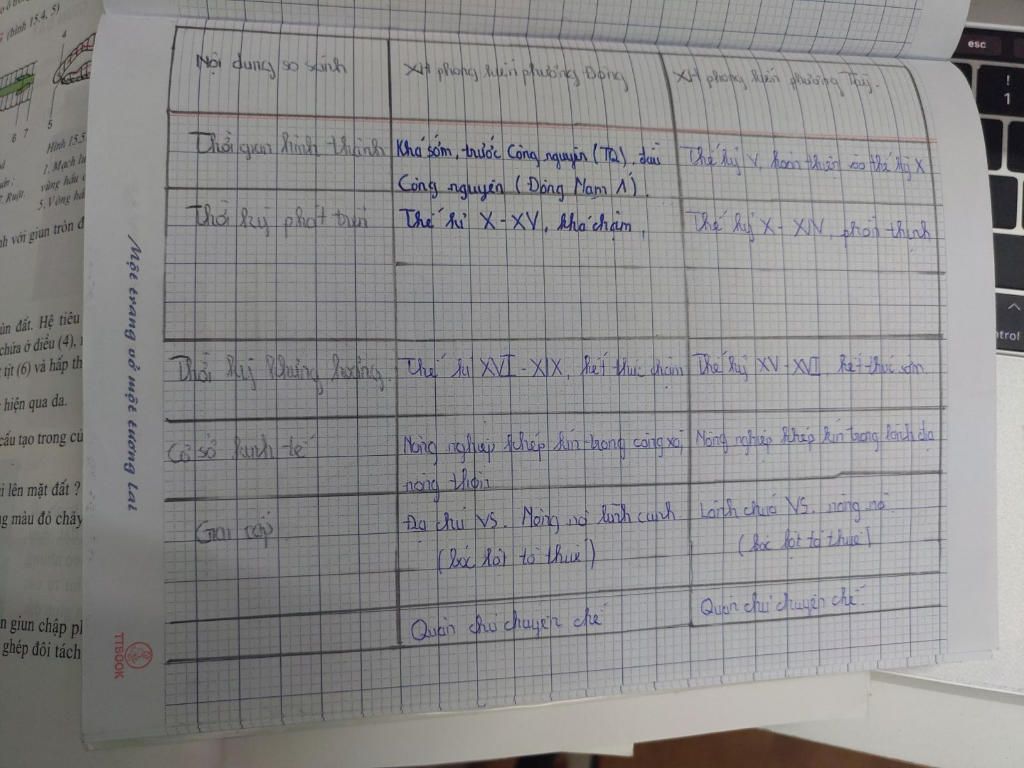 (hình 15.4, 5)
4
5
6 7
Hình 15.5
1. Mạch lu
vòng hầu
Ruột.
5. Vòng hầ
nh với giun tròn đ
ùn đất. Hệ tiêu
chứa ở diều (4),
tịt (6) và hấp th
hiện qua da.
cấu tạo trong củ
i lên mặt đất ?
ng màu đỏ chảy
n giun chập ph
ghép đôi tách
Một trang vở một tương lai
TTBOOK
Nội dung so sánh
XH phong kiến phương Đông
XH phong kiến phương Tây.
Thời gian hình thành
Khá sớm, trước Công nguyên (TQ), đầu
Công nguyên (Đông Nam Á).
Thế kỷ V, hoàn thiện vào thế kỷ X
Thời kỳ phát triển
Thế kỉ X - XV, khá chậm,
Thế kỷ X - XIV, phồn thịnh
Thời kỳ khủng hoảng
Thế kỉ XVI - XIX, kết thúc chậm
Thế kỷ XV - XVI, kết thúc sớm
Cơ sở kinh tế
Nông nghiệp khép kín trong công xã
nông thôn
Nông nghiệp khép kín trong lãnh địa
Giai cấp
Địa chủ VS. Nông nô lĩnh canh
(bóc lột tô thuế)
Lãnh chúa VS. nông nô
(bóc lột tô thuế)
Quân chủ chuyên chế
Quân chủ chuyên chế.
esc
!
1
^
ntrol